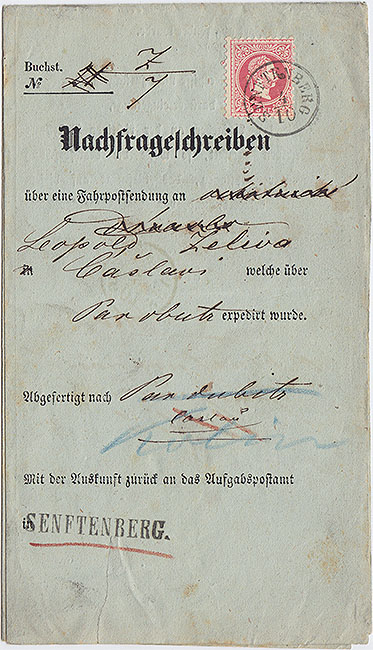 Buchst. Z
№ 7
SENFTENBERG
10
Nachfrageschreiben
über eine Fahrpostsendung an
Leopold Zeliva
in Čáslavi welche über
Pardubitz expedirt wurde.
Abgefertigt nach Pardubitz
Caslau
Kolin
Mit der Auskunft zurück an das Aufgabspostamt
in SENFTENBERG.